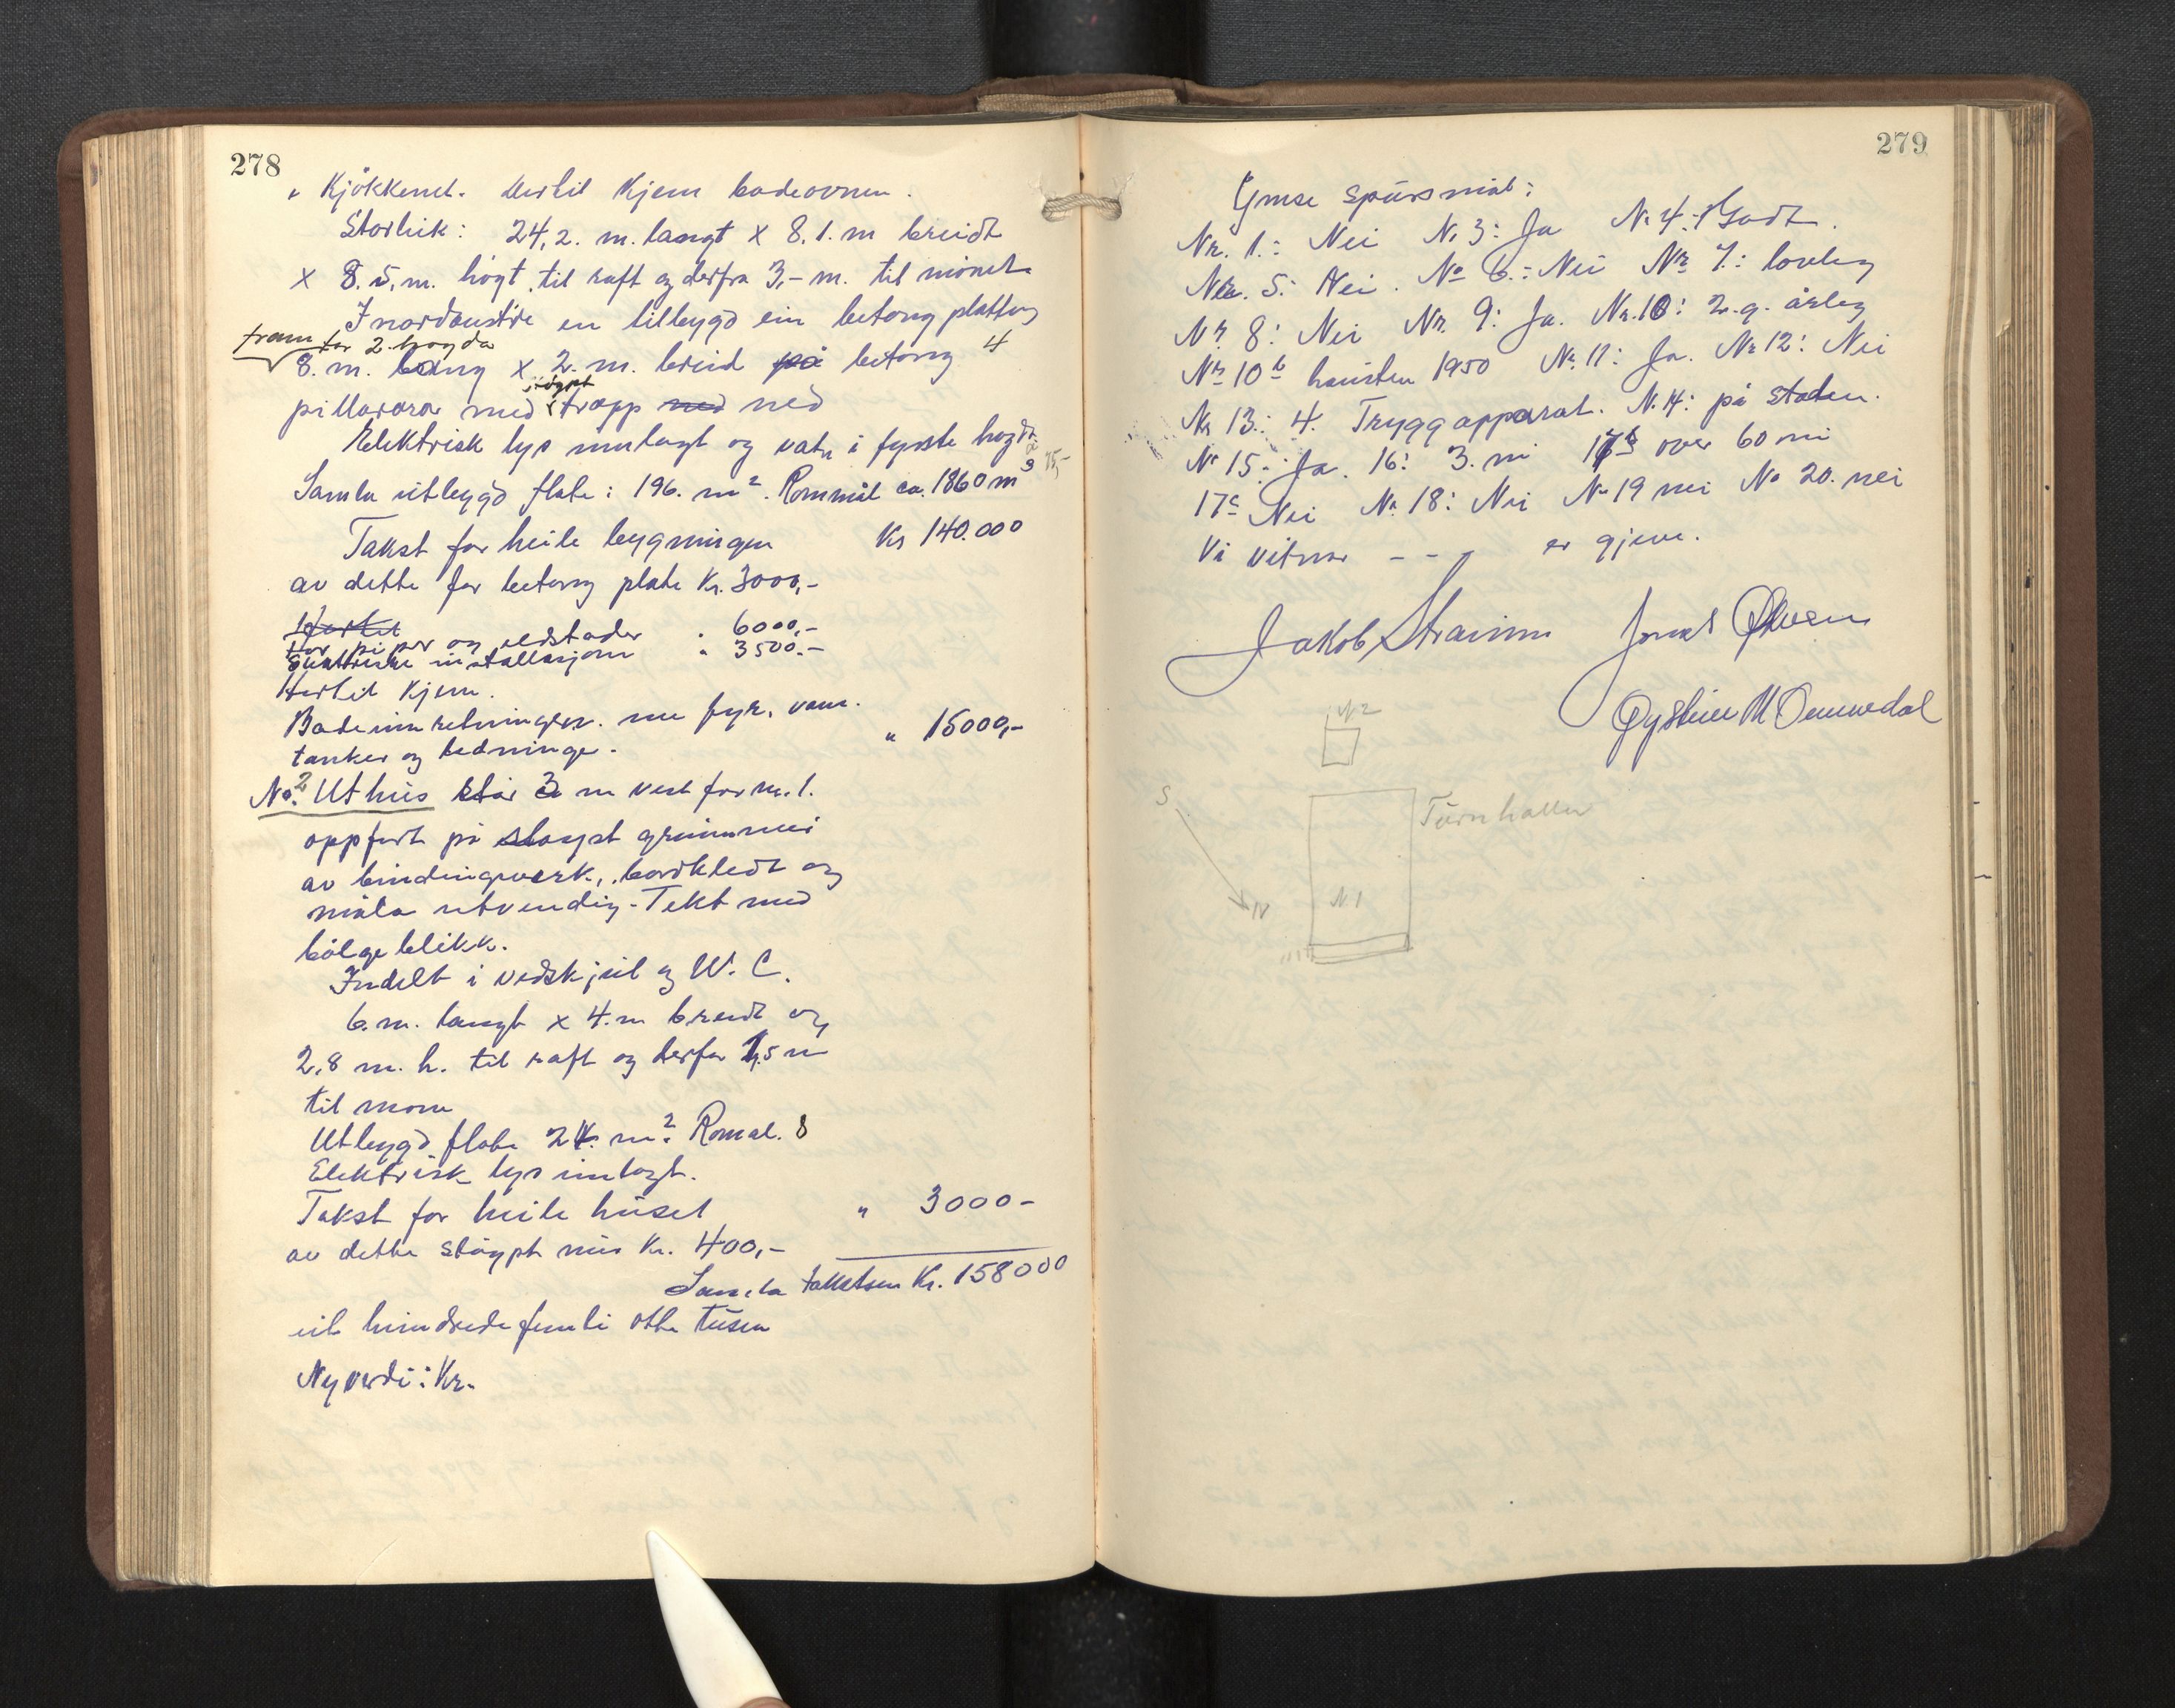 278
" Kjökkenet. Dertil Kjem badeovnen.
Storleik: 24,2. m. langt x 8.1. m breidt
x 8.5. m. högt til raft og derfra 3,- m. til mönet.
I nordaustre en tilbygd ein betong plattng
fram for 2. høgda
8. m. lang x 2. m. breid på betong 4
pillarar med støypt trapp ned ned
Elektrisk lys innlagt og vatn i fyrste høgda
Samla utbygd flate: 196. m². Rommål ca. 1860 m³ 75,-
Takst for heile bygningen Kr 140.000
av dette for betong plate Kr. 3000,-
Hertil
for piper og eldstader . 6000,-
Elektriske installasjon " 3500.-
Hertil Kjem.
Badeinnretningen. m fyr, vam.
tanker og ledninge. " 15000,-
No. 2 Uthus står 3 m vest for nr. 1.
oppfört på støypt grunnmur
av bindingverk, bordkledt og
måla utvendig. Tekt med
bölgeblikk.
Indelt i vedskjul og W. C.
6. m. langt x 4. m breidt og
2,8 m. h. til raft og derfra 1,5 m
til mone
Utbygd flate 24. m². Romål. 8
Elektrisk lys innlagt.
Takst for heile huset " 3000-
av dette støypt mur Kr. 400,-
Samla taksten Kr. 158000
eit hundrede femti otte tusen
Ny verdi: Kr.
279
Ymse spursmål:
Nr. 1.: Nei Nr 3: Ja Nr 4: Godt.
Nr. 5: Nei. No 6.: Nei Nr 7.: lovleg
Nr 8: Nei Nr. 9: Ja. Nr. 10: 2. g. årleg
Nr 10 b hausten 1950 Nr. 11: Ja. Nr 12: Nei
Nr 13: 4. Tryggapparat. Nr. 14: på staden.
Nr 15: Ja. 16: 3. m 17 b over 60 m
17c Nei Nr 18: Nei Nr 19 nei No 20. nei
Vi vitnar - - - er gjeve.
Jakob Straumn
Øystein M Ommedal
N 2
S
Turnhallen
N. 1
N